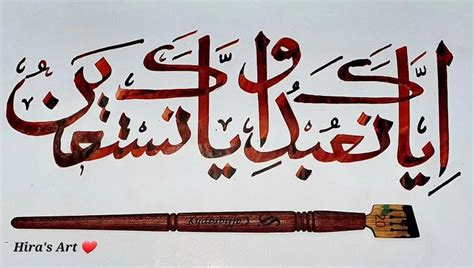 إِيَّاكَ نَعْبُدُ وَإِيَّاكَ نَسْتَعِينُ
Hira's Art ❤